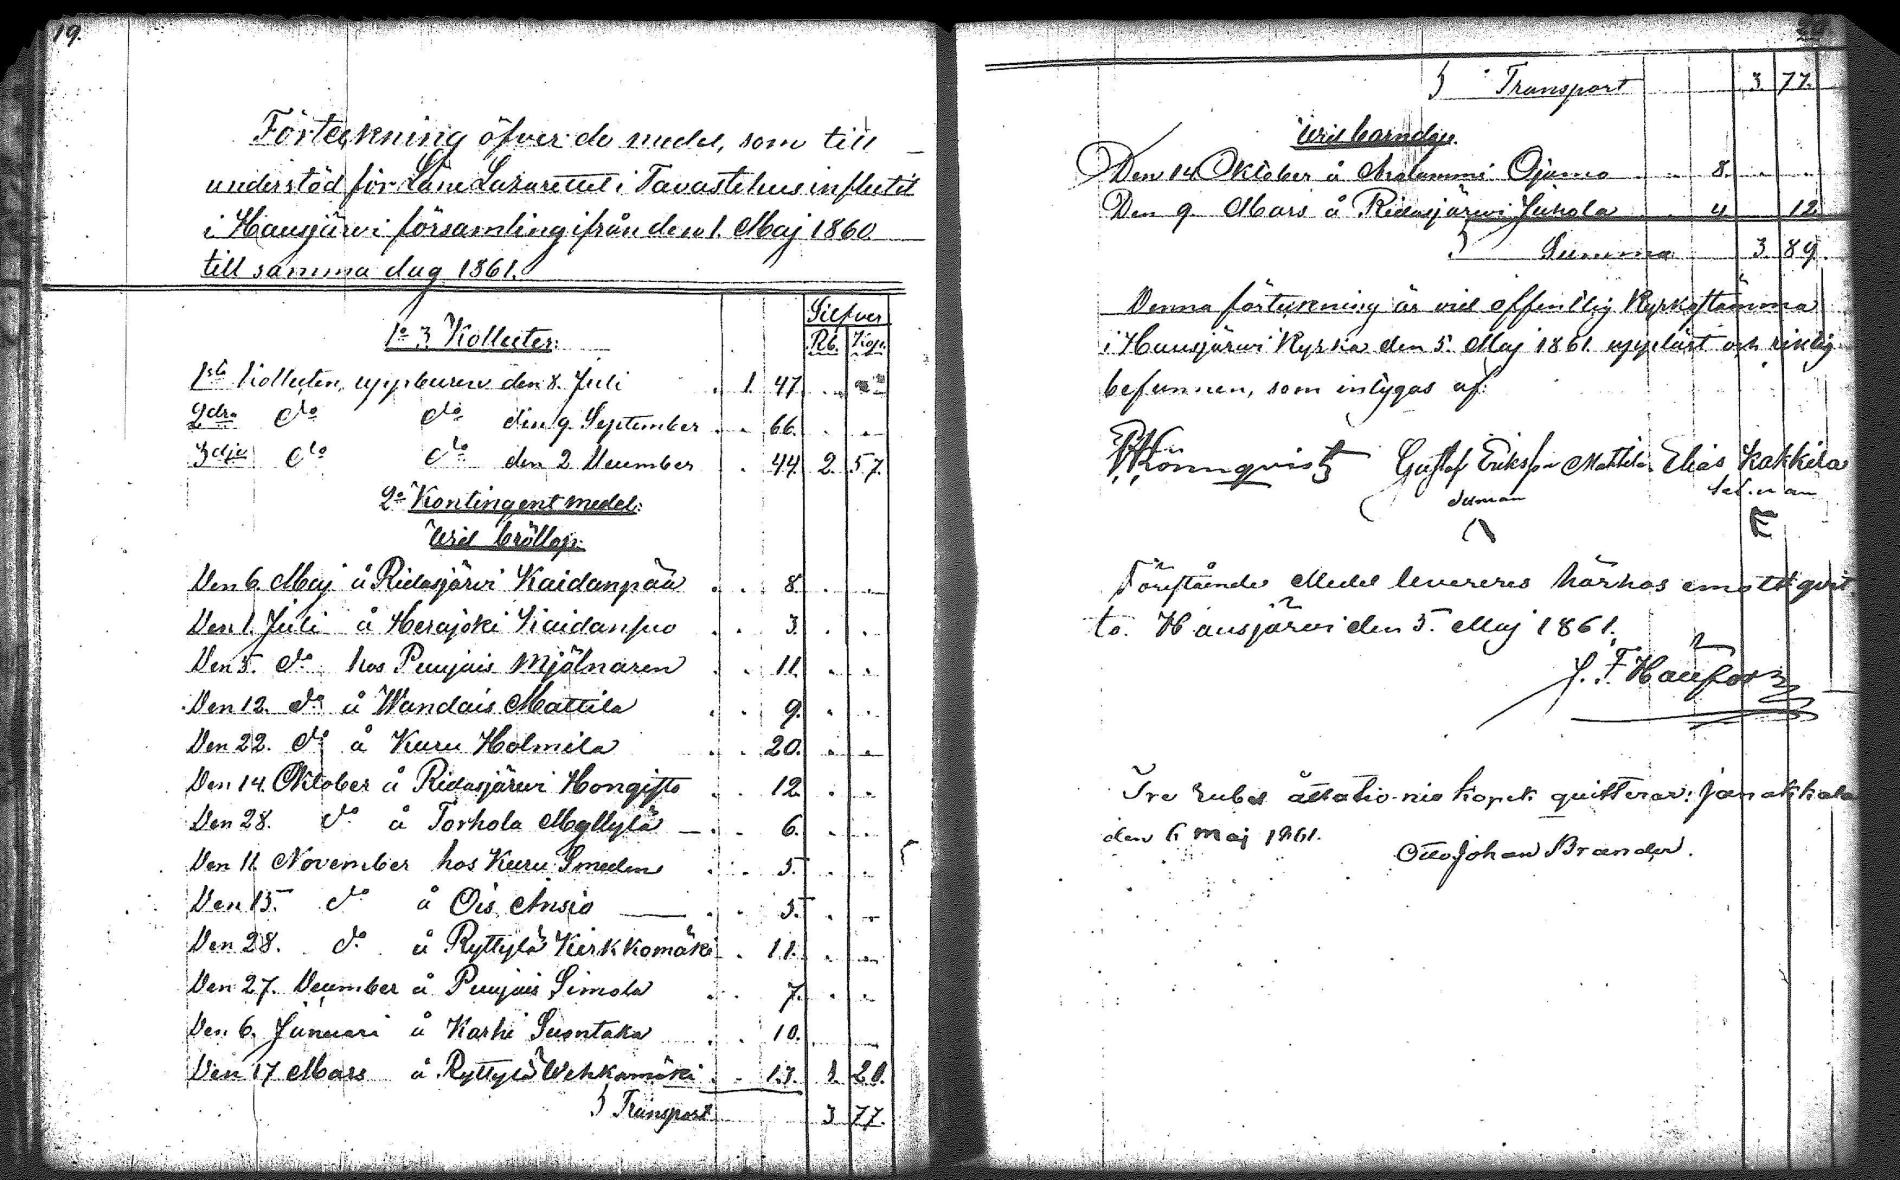 19.
Förteckning öfver de medel, som till
understöd för Läns Lazarettet i Tavastehus influtit
i Hausjärvi församling ifrån den 1. Maj 1860
till samma dag 1861.
Silfver
1o 3 Kollecter:
Rb. Kop.
1sta Kollecten, uppburen den 8. Juli . 1. 47. . .
2dra do do den 9. September . . 66. . .
3dje do do den 2 December . 44. 2. 57.
2o Kontingent medel:
Wid bröllop:
Den 6. Maj å Ridasjärvi Kaidanpää . . 8. . .
Den 1. Juli å Herajoki Kaidanpuo . . 3. . .
Den 5. do hos Punjais Mjölnaren . . 11. . .
Den 12. do å Wandais Mattila . . 9. . .
Den 22. do å Kuru Holmila . . 20. . .
Den 14. Oktober å Ridasjärvi Hongisto . . 12. . .
Den 28. do å Torhola Myllylä . . 6. . .
Den 11. November hos Kuru Smeden . . 5. . .
Den 15. do å Ois Ansio . . 5. . .
Den 28. do å Ryttylä Kirkkomäki . 11. . .
Den 27. December å Punjais Simola . . 7. . .
Den 6. Januari å Karhi Suontaka . . 10. . .
Den 17 Mars å Ryttylä Wehkamäki . . 13. 1. 20.
Transport 3 77.
Transport 3 77.
Wid barndop.
Den 14 Oktober å Ojamo . . 8. . .
Den 9. Mars å Ridasjärvi Juhola . . 4. 12
Summa 3. 89.
Denna förteckning är vid offentlig Kyrkostämma
i Hausjärvi Kyrka den 5. Maj 1861 uppläst och riktig
befunnen, som intygas af:
Rönnqvist Gustaf Eriksson Mattila Elias Kakkila
E
Föreståendes Medel levereres härhos emot qvit
to. Hausjärvi den 5. Maj 1861.
Tre rubel åttatio nio kopek quitterar: Janakkala
den 6 maj 1861.
Otto Johan Brander.